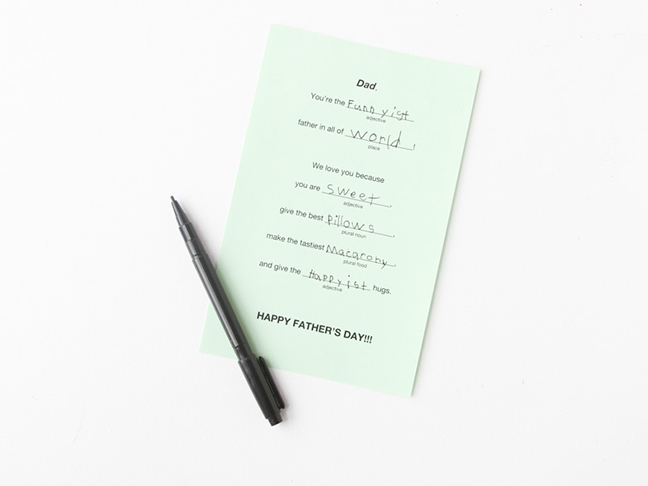 Dad,
You're the Funnyist
adjective
father in all of world,
place
We love you because
you are sweet,
adjective
give the best pillows,
plural noun
make the tastiest Macarony,
plural food
and give the Happyist hugs.
adjective
HAPPY FATHER'S DAY!!!